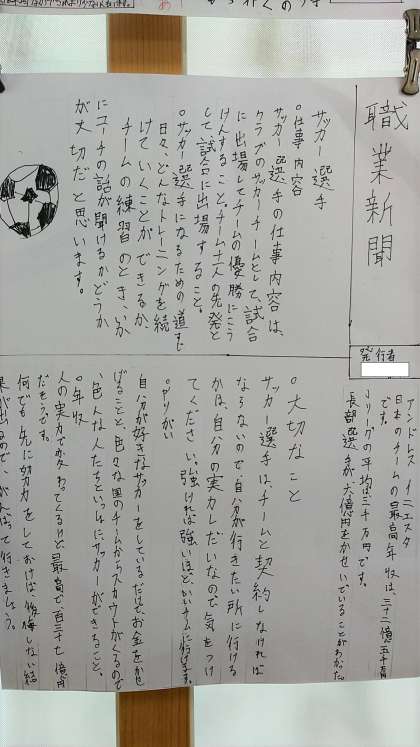 職業新聞
発行者
サッカー選手
○仕事内容
サッカー選手の仕事内容は、
クラブのサッカーチームとして、試合
に出場してチームの優勝にこう
けんすること。チームナースの先発と
して、試合に出場すること。
○サッカー選手になるための道すじ
日々、どんなトレーニングを続
けていくことができるか、
チームの練習のとき、いか
にコーチの話が聞けるかどうか
が大切だと思います。
アンドレス・イニエスタ
日本のチームの最高年収は、三十二億五千万
です。
Jリーグの平均は三千万円です。
長部選手が六億円をかせいでいることがわかった。
○大切なこと
サッカー選手は、チームと契約しなければ
ならないので、自分が行きたい所に行ける
かは、自分の実力しだいなので気をつけ
てください。強ければ強いほど、かいチームに行けます。
○やりがい
自分が好きなサッカーをしているだけでお金をかせ
げることと、色々な国のチームからスカウトがくるので
、色んな人たちといっしょにサッカーができること、
○年収
人の実力でかわってくるけど、最高で、百三十七億円
だそうです。
何でも先に努力をしておけば、後悔しない結
果が出るので、がんばって行きましょう。